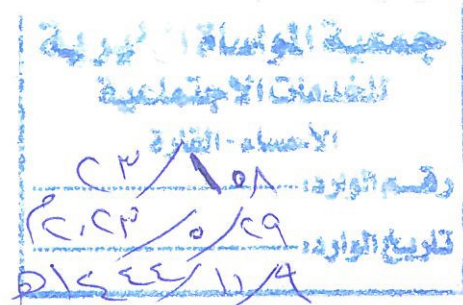 جمعية المواساة الخيرية
للخدمات الاجتماعية
الأحساء - القارة
رقم الوارد: ١٥٨/٢٣
تاريخ الوارد: ٢٩/٥/٢٠٢٣م
٩/١١/١٤٤٤هـ